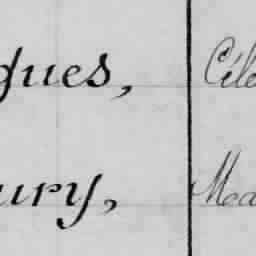 gues, Cél
ury, Mea